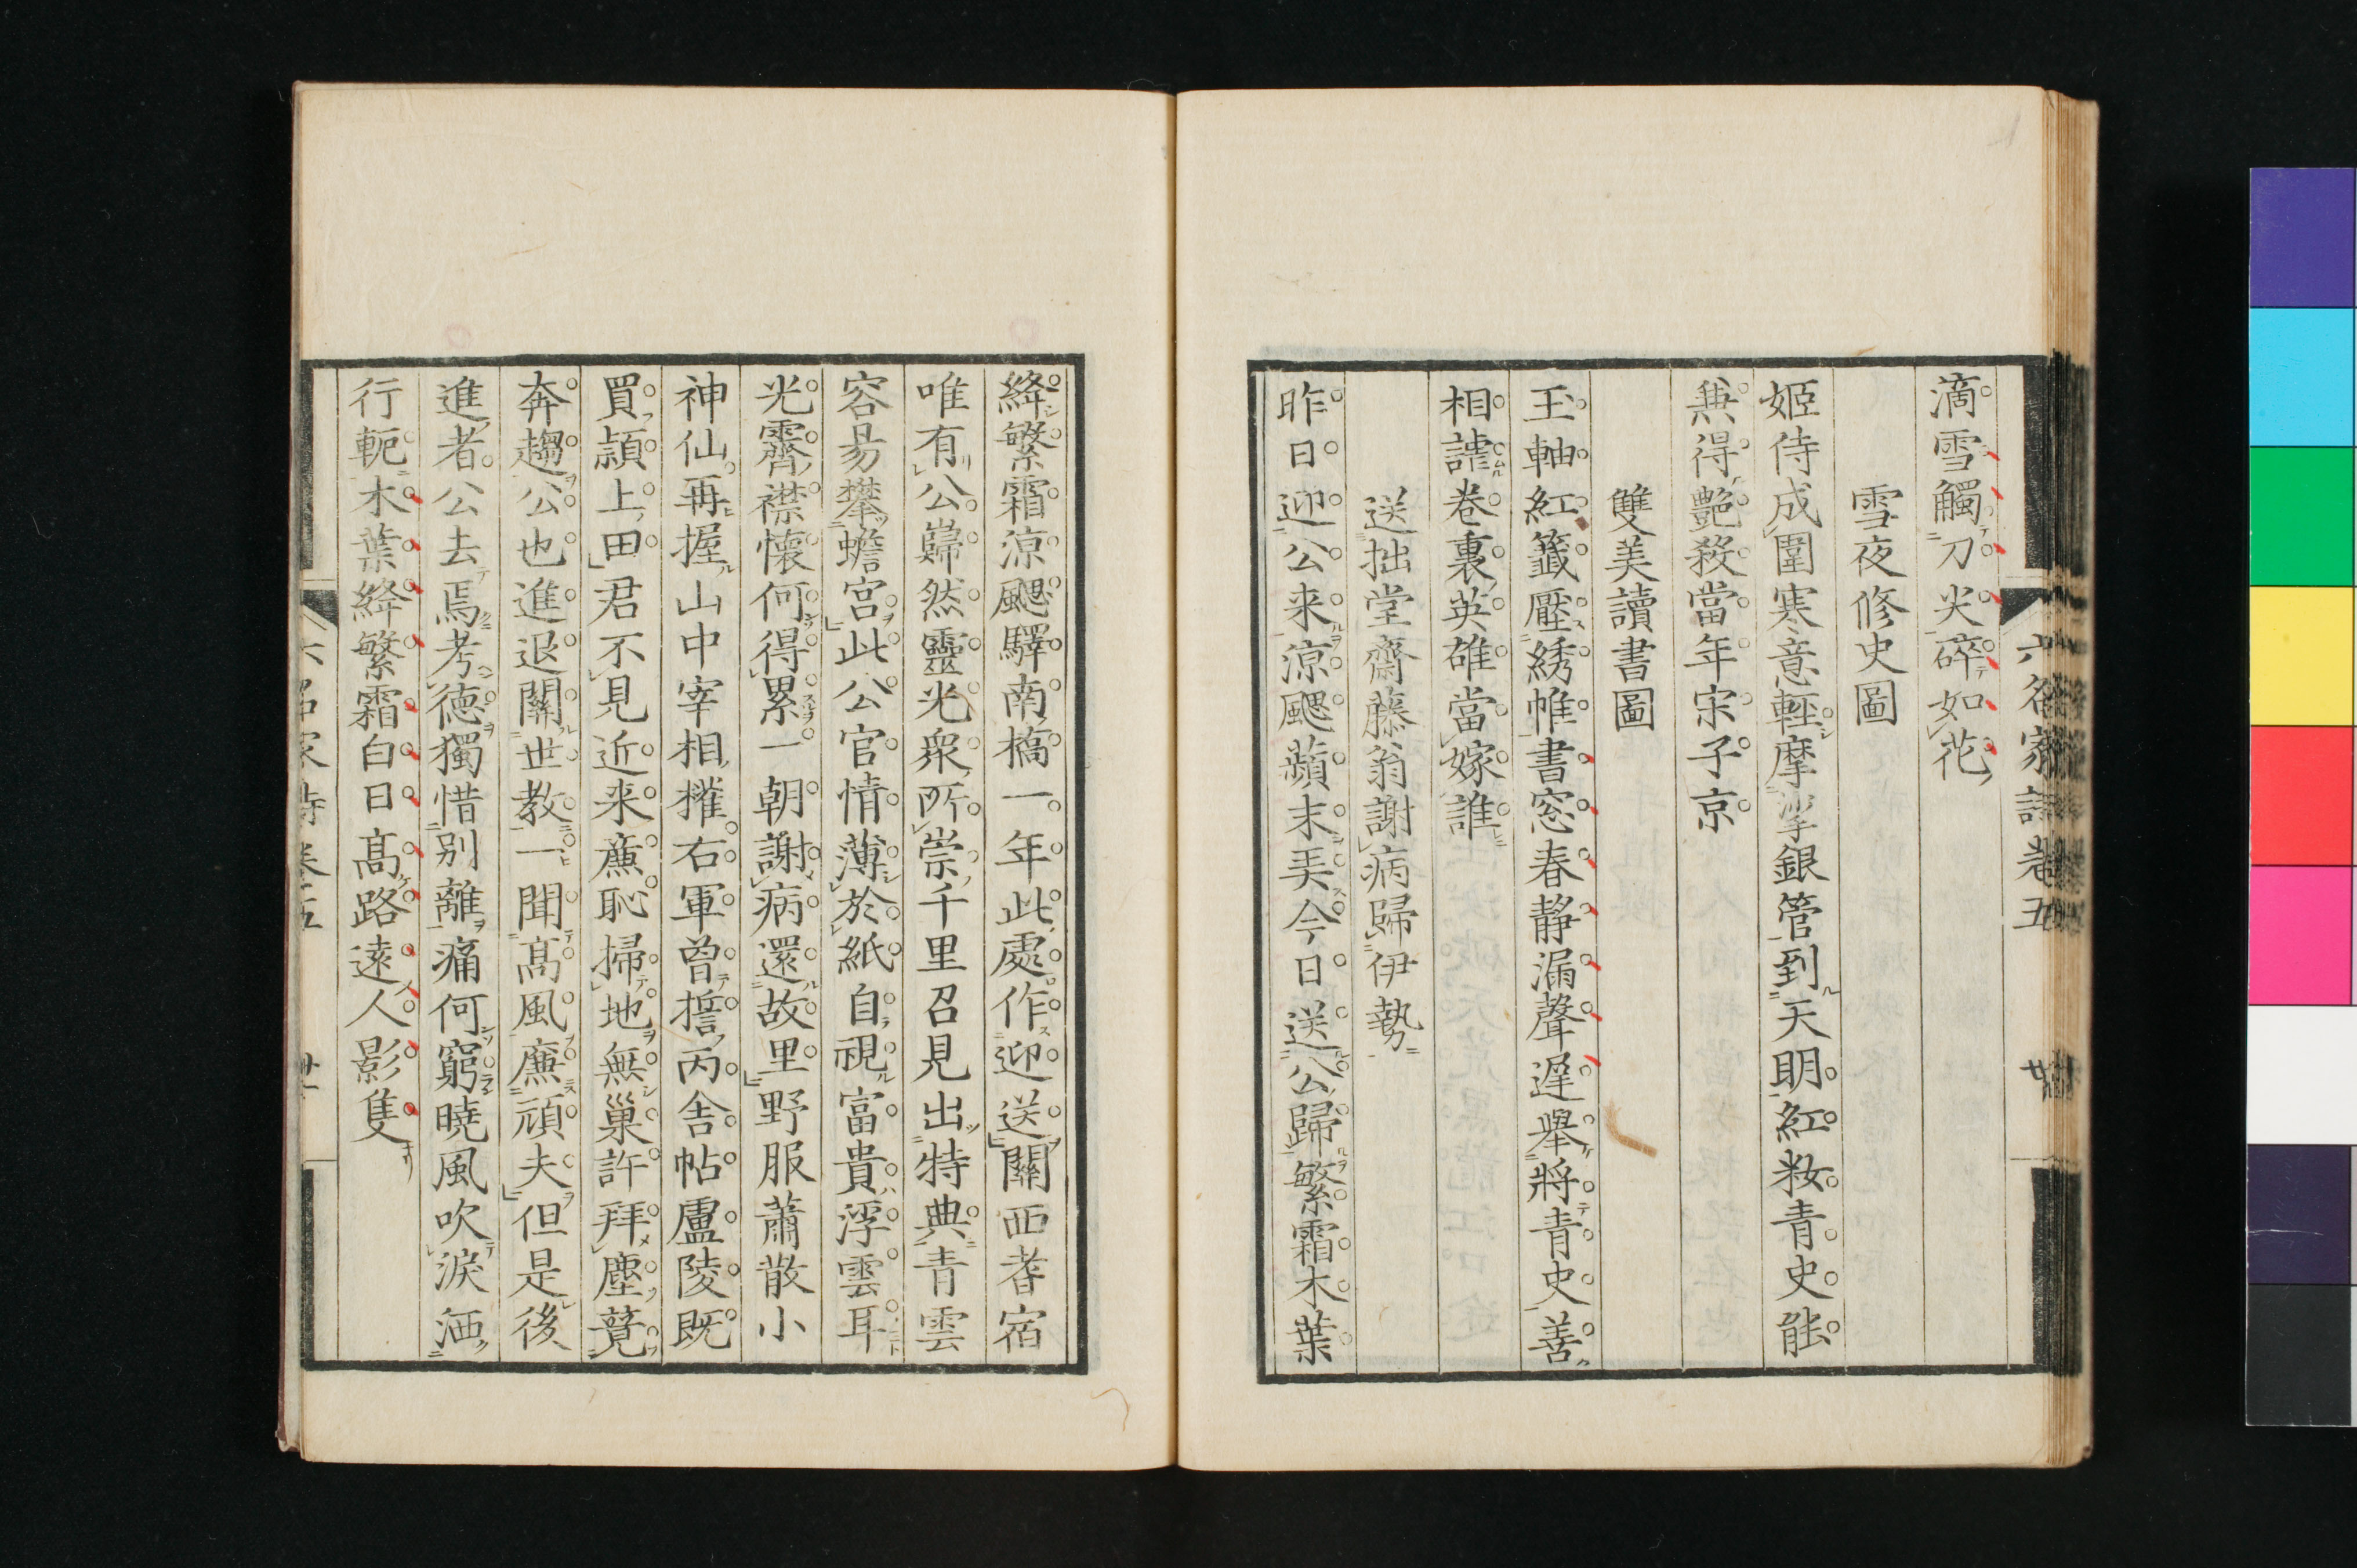 六名家詩卷五
滴雪觸刀尖碎如花
雪夜修史圖
姬侍成圍寒意輕摩挲銀管到天明紅粧青史能
兼得艷殺當年宋子京
雙美讀書圖
玉軸紅籤壓綉帷書窓春靜漏聲遲舉將青史善
相謔卷裏英雄當嫁誰
送拙堂齋藤翁謝病歸伊勢
昨日迎公来涼颸蘋末美今日送公歸繁霜木葉
絳繁霜涼颸驛南橋一年此處作迎送關西耆宿
唯有公巋然靈光衆所崇千里召見出特典青雲
容易攀蟾宮此公官情薄於紙自視富貴浮雲耳
光霽襟懷何得累一朝謝病還故里野服蕭散小
神仙再握山中宰相權右軍曾誓丙舍帖盧陵既
買潁上田君不見近来廉恥掃地無巢許拜塵競
奔趨公也進退關世教一聞髙風廉頑夫但是後
進者公去焉考德獨惜别離痛何窮曉風吹淚洒
行軛木葉絳繁霜白日髙路遠人影隻
六名家詩卷五